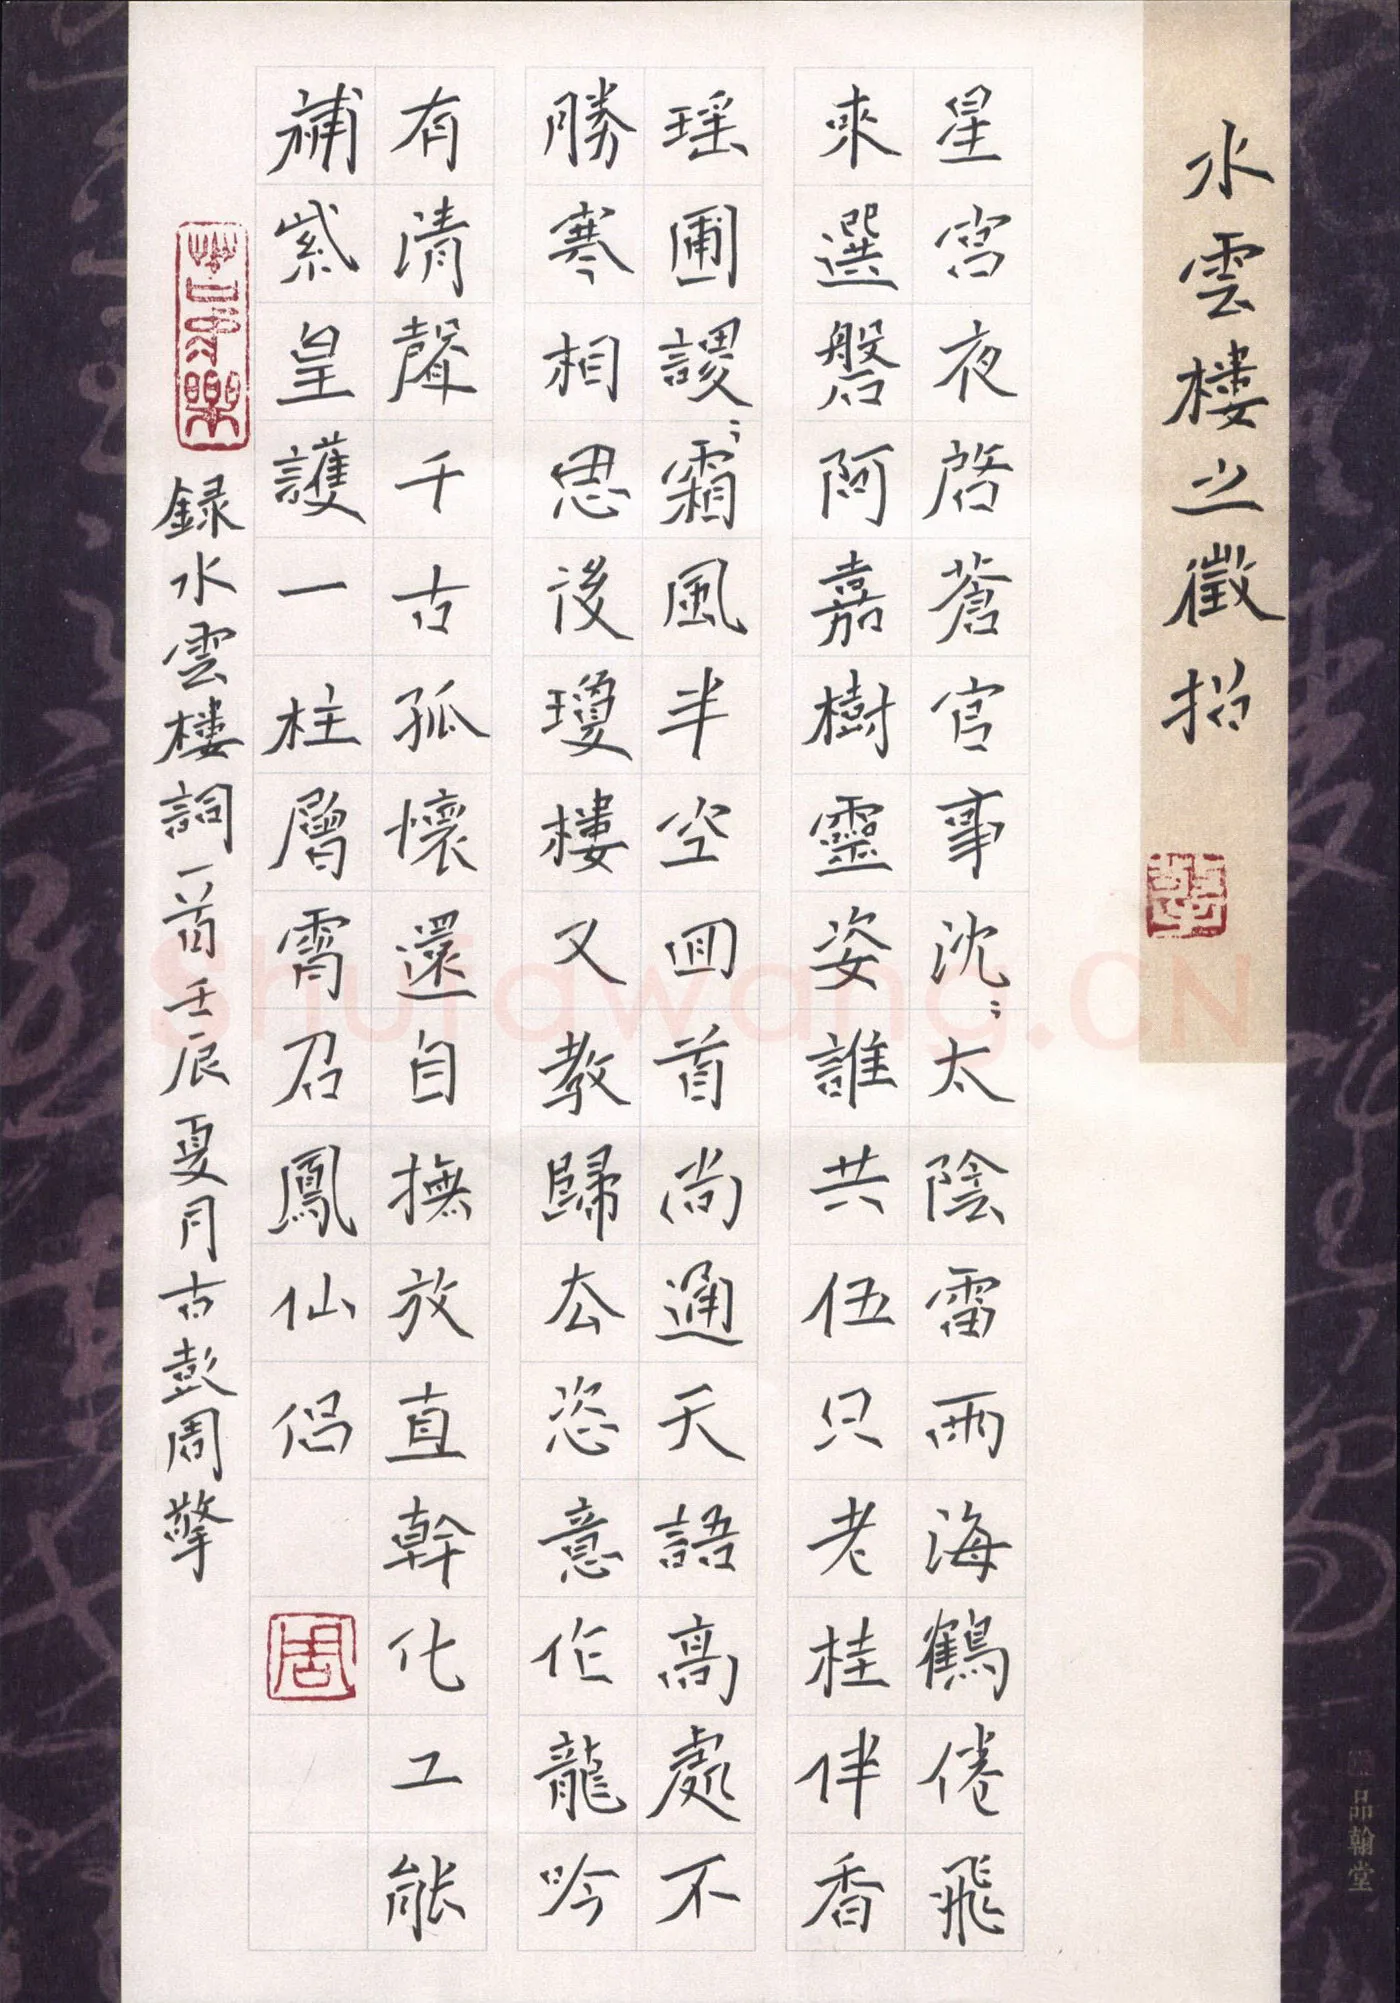 水雲樓之徵招
星宮夜啓蒼官事沈〻太陰雷雨海鶴倦飛
來選磐阿嘉樹靈姿誰共伍只老桂伴香
瑤圃謖〻霜風半空回首尚通天語高處不
勝寒相思後瓊樓又教歸去恣意作龍吟
有清聲千古孤懷還自撫放直幹化工能
補紫皇護一柱層霄召鳳仙侶
錄水雲樓詞一首壬辰夏月古彭周擎
周
品翰堂
Shufawang.CN